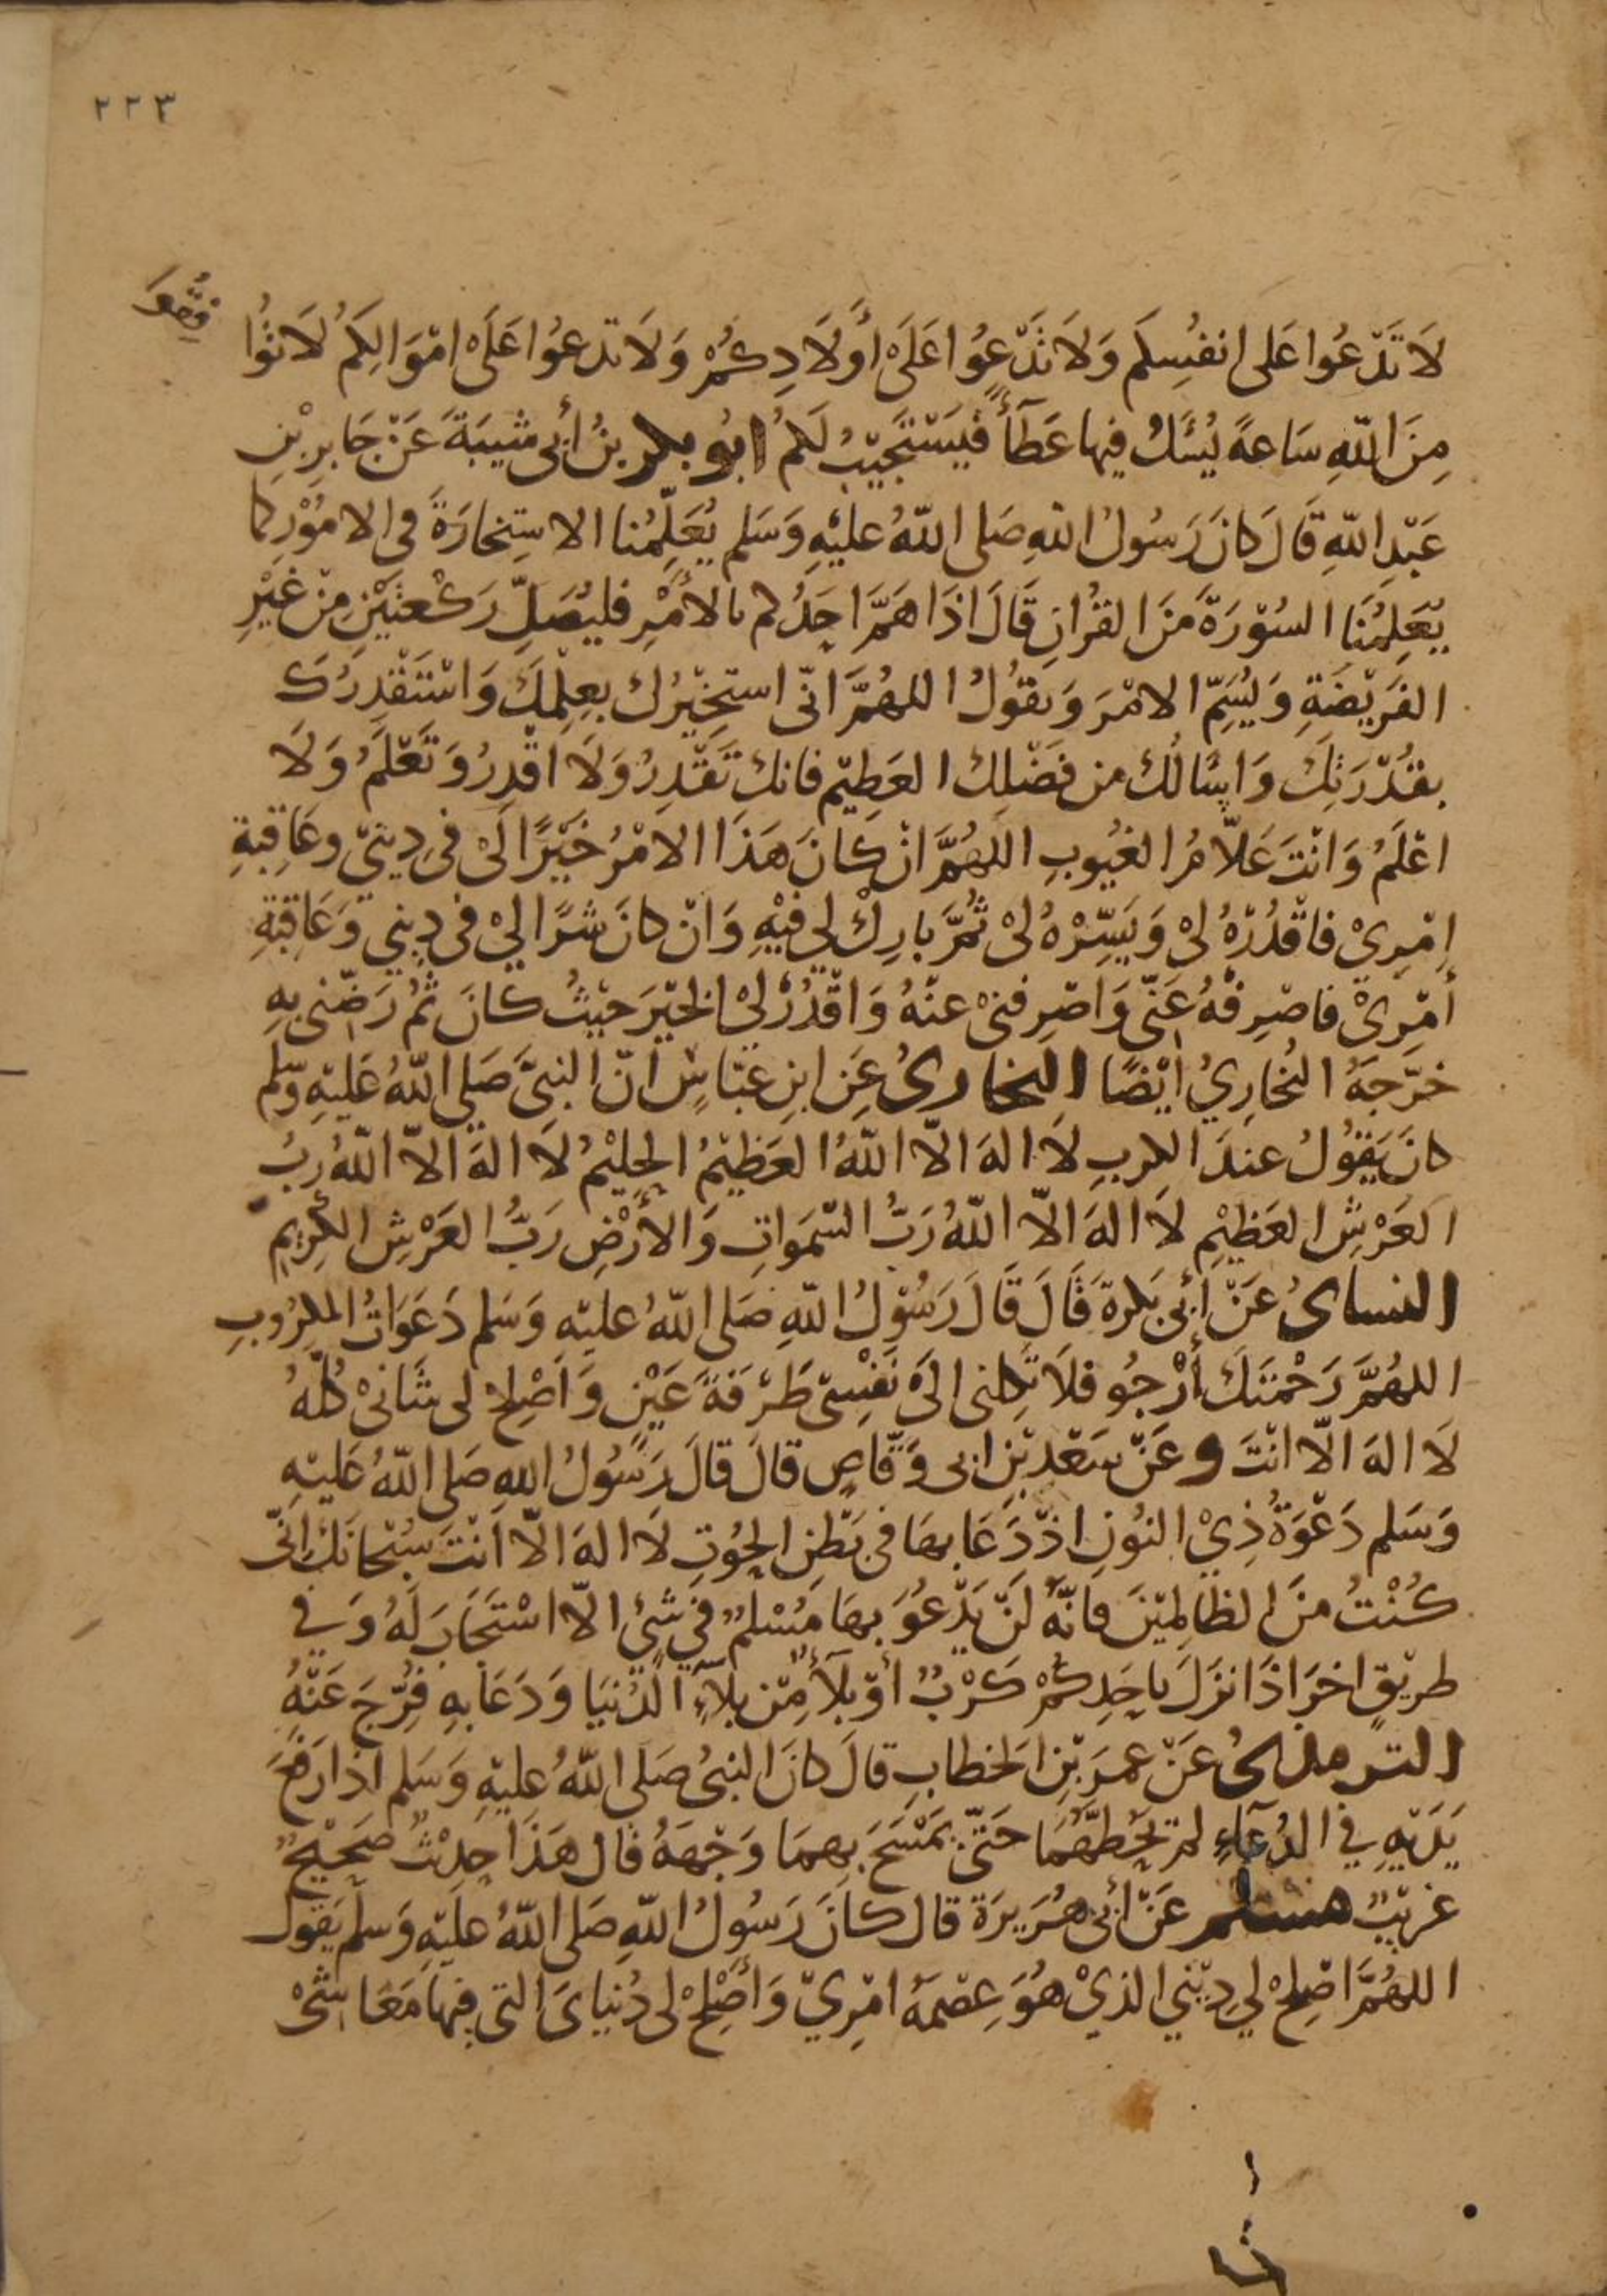 ٢٢٣
لَا تَدْعُوا عَلَى انفُسِكُم وَلَا تَدْعُوا عَلَى أَوْلَادِكُمْ وَلَا تدعُوا عَلَى امْوَالِكُمُ لَا توُا
فِقُوا
مِنَ اللهِ سَاعةً يُسْئَلُ فِيها عَطَآءً فَيَسْتَجِيْبُ لَكُمُ ابُو بكر بنُ أبى شيبَةَ عَنْ جَابِرِ بْنِ
عَبْدِ اللهِ قَالَ كانَ رَسُولُ اللهِ صَلى اللهُ عليْهِ وَسَلم يُعَلِّمُنا الاستِخارَةَ فى الامُوْرِ كما
يُعَلِّمُنَا السُوْرَةَ مَنَ القُرْانِ قَالَ اذَا هَمَّ احَدُكم بالأمْرِ فليُصَلِّ رَكْعتَيْنِ مِنْ غَيْرِ
الفَرِيْضَةِ وَليُسَمِّ الامْرَ وَيقُولُ اللهُمَّ انّى استخيْرُكَ بعِلْمِكَ وَاسْتَقْدِرُكَ
بقُدْرَتِكَ وَاسْالُكَ من فضْلِكَ العَظِيْمِ فانكَ تَقْدِرُ وَلَا اقْدِرُ وَتَعْلَمُ وَلَا
اعْلَمُ وَانْتَ عَلّامُ الغُيُوبِ اللهُمَّ انْ كانَ هَذَا الامْرُ خَيْرًا لىْ فى دِيْنىْ وعَاقِبةِ
امْرِىْ فاقْدُرْهُ لىْ وَيَسِّرْهُ لىْ ثُمَّ بَارِكْ لى فيْهِ وَانْ كانَ شَرًّا لىْ فى دِينِي وَعَاقِبَةِ
أمْرِىْ فاصْرِفْهُ عَنّى وَاصْرِفنىْ عنْهُ وَاقْدُرْ لىْ الخيْرَ حَيْثُ كانَ ثُمَّ رَضِّنى بِهِ
خرَّجَهُ البُخارِيُ ايْضًا البخارىُ عَنِ ابنِ عبّاسٍ انّ النبىَّ صَلى اللهُ عَليْهِ وَسلم
كانَ يَقُولُ عندَ الكربِ لَا الهَ الّا اللهُ العَظيْمُ الحلِيْمُ لَا الهَ الّا اللهُ ربُّ
العَرْشِ العَظيْمِ لَا الهَ الّا اللهُ رَبُّ السّمَواتِ وَالأرْضِ رَبُّ العَرْشِ الكَرِيمِ
النساىُ عَنْ أبى بَكرةَ قَالَ قَالَ رَسُوْلُ اللهِ صَلى اللهُ عليْهِ وَسَلم دَعَوَاتُ المكرُوبِ
اللهُمَّ رَحْمتَكَ أرْجُو فلَا تكِلنى الىَ نَفْسِىْ طَرْفَةَ عَيْنٍ وَاَصْلِحْ لى شَانىْ كُلّهُ
لَا الهَ الّا انْتَ وعَنْ سَعْدِ بْنِ ابى وَقّاصٍ قالَ قالَ رَسُولُ اللهِ صَلى اللهُ عَليْهِ
وَسَلم دَعْوَةُ ذِيْ النُونِ اذْ دَعَا بهَا فى بَطْنِ الحُوْتِ لَا الهَ الّا اَنْتَ سُبْحَانَكَ انّى
كُنْتُ منَ الظالِميْنَ فانَّهُ لَنْ يَدْعُوَ بهَا مُسْلمٌ فى شئٍ الّا اسْتَجَابَ لَهُ وَفِي
طريْقٍ اخَرَ اذَا نزَلَ باحَدِكُمْ كَرْبٌ أوْ بلَآءٌ مِّنْ بلَآءِ الدُنيَا وَدَعَا بهِ فرّجَ عَنْهُ
الترمذىُ عَنْ عمَرَ بْنِ الخطابِ قالَ كانَ النبىُ صَلى اللهُ عليْهِ وَسَلم اذا رَفعَ
يَدَيْهِ فى الدُعَآءِ لم يحُطّهُمَا حَتّى يَمْسَحَ بِهمَا وَجْههُ قال هَذَا حدِيْثٌ صَحيْحٌ
غريْبٌ مسلم عَنْ أبى هُرَيرَةَ قال كانَ رَسُولُ اللهِ صَلى اللهُ عليْهِ وَسلم يَقول
اللهُمَّ اصْلِحْ لى دِيْنِي الذِيْ هُوَ عِصْمَةُ امْرِيْ وَأصْلِحْ لى دُنيَاىَ التى فيهَا مَعَاشىْ